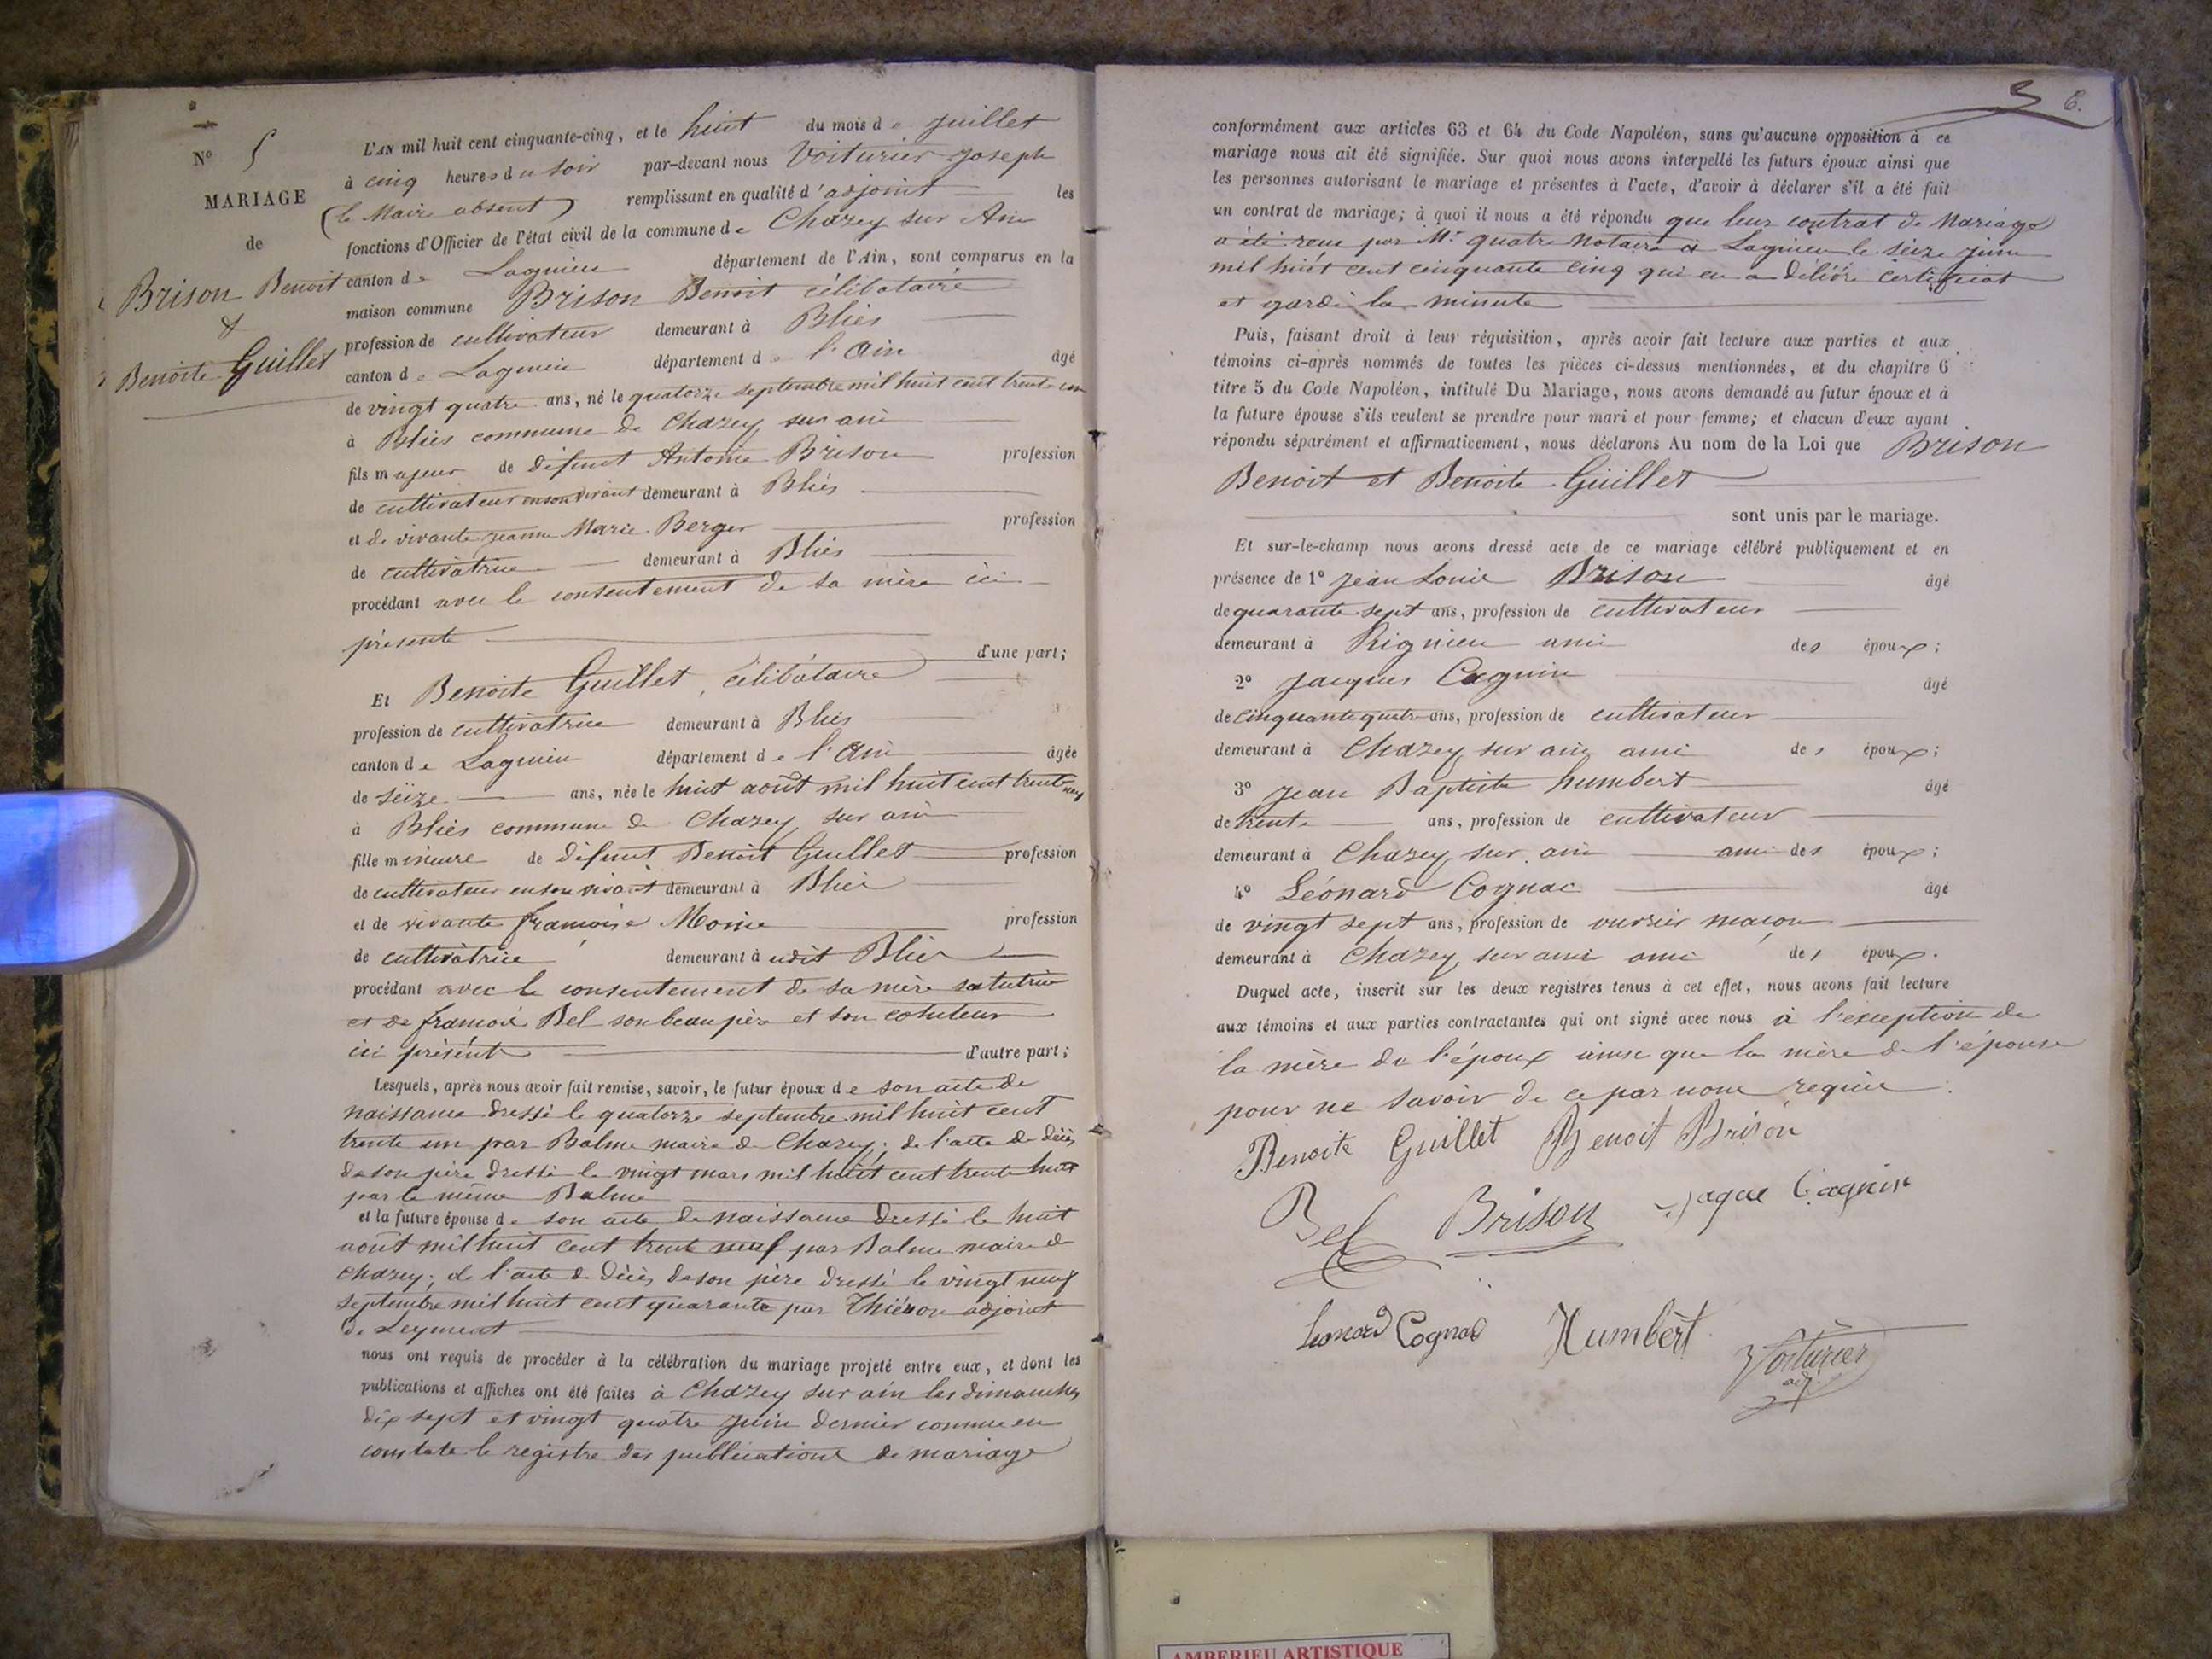 N° 5
MARIAGE
de
Brison Benoit
&
Benoite Guillet
L'AN mil huit cent cinquante-cinq, et le huit du mois de Juillet
à cinq heures du soir par-devant nous Voiturier Joseph
(le Maire absent) remplissant en qualité d'adjoint les
fonctions d'Officier de l'état civil de la commune de Chazey sur Ain
canton de Lagnieu département de l'Ain, sont comparus en la
maison commune Brison Benoit célibataire
profession de cultivateur demeurant à Bliés
canton de Lagnieu département de l'Ain âgé
de vingt quatre ans, né le quatorze septembre mil huit cent trente un
à Bliés commune de Chazey sur ain
fils majeur de défunt Antoine Brison profession
de cultivateur en son vivant demeurant à Bliés
et de vivante jeanne Marie Berger profession
de cultivatrice demeurant à Bliés
procédant avec le consentement de sa mère ici
présente d'une part;
Et Benoite Guillet, célibataire
profession de cultivatrice demeurant à Bliés
canton de Lagnieu département de l'Ain âgée
de seize ans, née le huit août mil huit cent trente neuf
à Bliés commune de Chazey sur ain
fille mineure de défunt Benoit Guillet profession
de cultivateur en son vivant demeurant à Bliés
et de vivante françoise Moine profession
de cultivatrice demeurant à udit Bliés
procédant avec le consentement de sa mère sa tutrice
et de françois Bel son beau père et son cotuteur
ici présents d'autre part;
Lesquels, après nous avoir fait remise, savoir, le futur époux de son acte de
naissance dressé le quatorze septembre mil huit cent
trente un par Balme maire de Chazey; de l'acte de décès
de son père dressé le vingt mars mil huit cent trente huit
par le même Balme
et la future épouse de son acte de naissance dressé le huit
août mil huit cent trente neuf par Balme maire de
chazey; de l'acte de décès de son père dressé le vingt neuf
septembre mil huit cent quarante par adjoint
de Leyment
nous ont requis de procéder à la célébration du mariage projeté entre eux, et dont les
publications et affiches ont été faites à Chazey sur ain les dimanches
dix sept et vingt quatre juin dernier comme en
constate le registre des publications de mariage
6.
conformément aux articles 63 et 64 du Code Napoléon, sans qu'aucune opposition à ce
mariage nous ait été signifiée. Sur quoi nous avons interpellé les futurs époux ainsi que
les personnes autorisant le mariage et présentes à l'acte, d'avoir à déclarer s'il a été fait
un contrat de mariage; à quoi il nous a été répondu que leur contrat de Mariage
a été reçu par Me quatre Notaire à Lagnieu le seize juin
mil huit cent cinquante cinq qui en a délivré certificat
et gardé la minute
Puis, faisant droit à leur réquisition, après avoir fait lecture aux parties et aux
témoins ci-après nommés de toutes les pièces ci-dessus mentionnées, et du chapitre 6
titre 5 du Code Napoléon, intitulé Du Mariage, nous avons demandé au futur époux et à
la future épouse s'ils veulent se prendre pour mari et pour femme; et chacun d'eux ayant
répondu séparément et affirmativement, nous déclarons Au nom de la Loi que Brison
Benoit et Benoite Guillet
sont unis par le mariage.
Et sur-le-champ nous avons dressé acte de ce mariage célébré publiquement et en
présence de 1° Jean Louis Brison âgé
de quarante sept ans, profession de cultivateur
demeurant à Rignieu ami des époux;
2° Jacques Cagnin âgé
de cinquante quatre ans, profession de cultivateur
demeurant à Chazey sur ain ami des époux;
3° Jean Baptiste humbert âgé
de trente ans, profession de cultivateur
demeurant à Chazey sur ain ami des époux;
4° Léonard Cognac âgé
de vingt sept ans, profession de ouvrier maçon
demeurant à Chazey sur ain ami des époux.
Duquel acte, inscrit sur les deux registres tenus à cet effet, nous avons fait lecture
aux témoins et aux parties contractantes qui ont signé avec nous à l'exception de
la mère de l'époux ainsi que la mère de l'épouse
pour ne savoir de ce par nous requise
Benoite Guillet Benoit Brison
Bel Brison Jaque Cagnin
Leonard Cognac Humbert Voiturier
adj.
AMBERIEU ARTISTIQUE